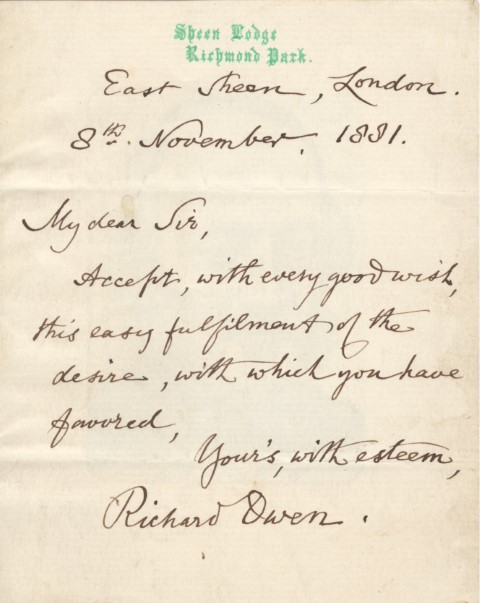 Sheen Lodge
Richmond Park.
East Sheen, London.
8th. November, 1881.
My dear Sir,
Accept, with every good wish,
this easy fulfilment of the
desire, with which you have
favored,
Your's, with esteem,
Richard Owen.